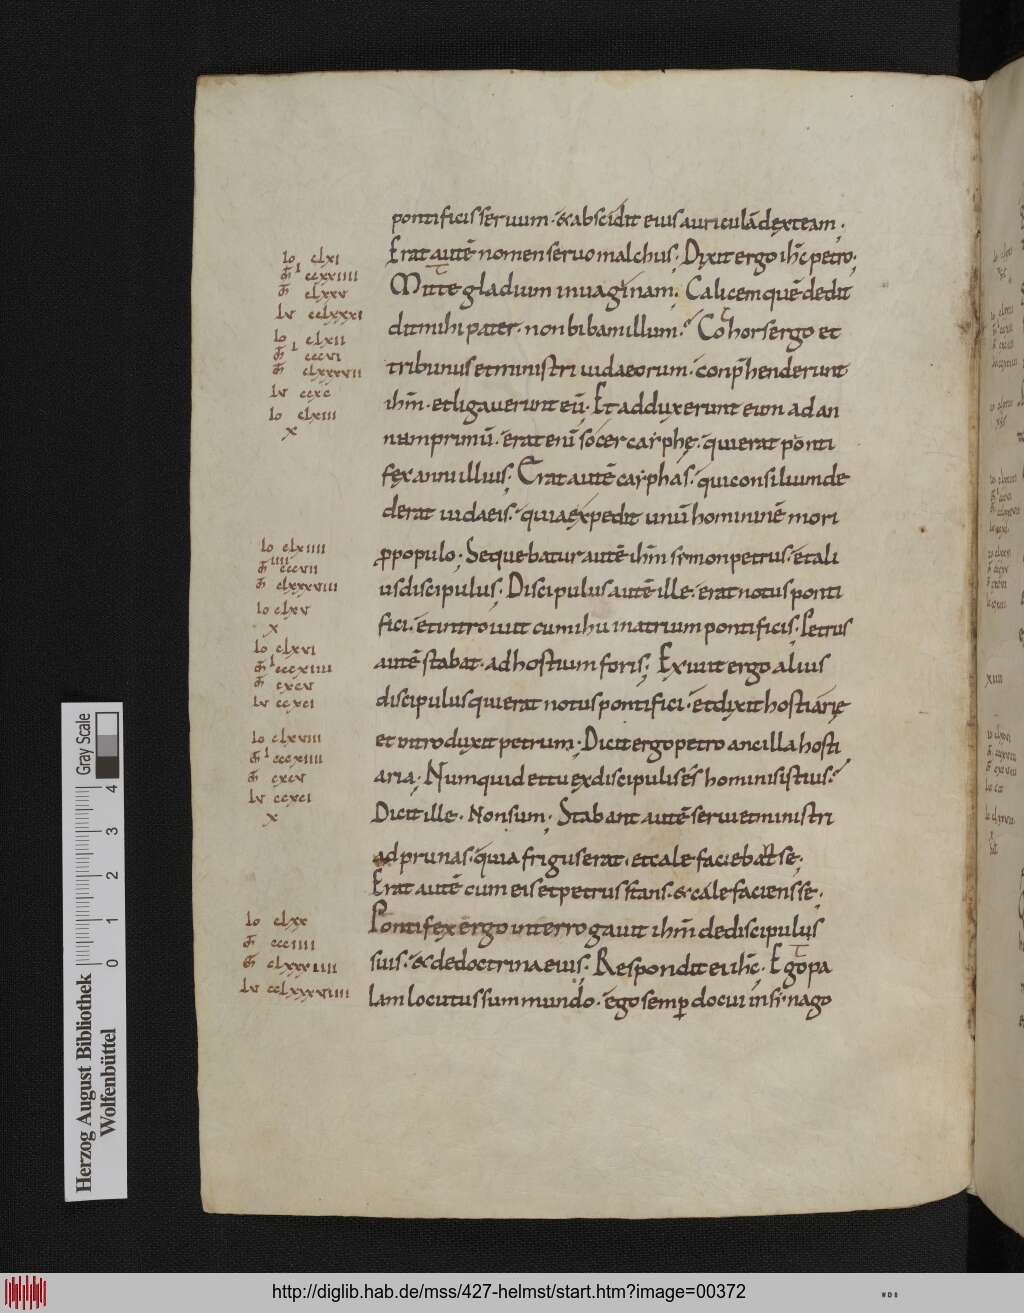 pontificis seruum · & abscidit eius auriculā dęxteam ;
Erat autē nomen seruo malchus ; Dixit ergo ihc̄ petro ;
Mitte gladium in uaginam ; Calicem quē dedit
dit mihi pater · non bibam illum ? Cohors ergo et
tribunus et ministri iudaeorum · conp̄henderunt
ihm̄ · et ligauerunt eū ; Et adduxerunt eum ad an
nam primū · erat enī socer caiphę · qui erat ponti
fęx anni illius ; Erat autē caiphas · qui consilium de
derat iudaeis · quia expedit unū hominē mori
ꝓ populo ; Sequebatur autē ihm̄ simon petrus · et ali
us discipulus ; Discipulus autē ille · erat notus ponti
fici · et introiuit cum ihu in atrium pontificis ; Petrus
autē stabat · ad hostium foris ; Exiuit ergo alius
discipulus qui erat notus pontifici · et dixit hostiarię
et introduxit petrum ; Dicit ergo petro ancilla hosti
aria ; Numquid et tu ex discipulis es hominis istius ?
Dicit ille · Non sum ; Stabant autē serui et ministri
ad prunas · quia frigus erat · et calefaciebāt se ;
Erat autē cum eis et petrus stans · & calefaciens se ;
Pontifex ergo interrogauit ihm̄ de discipulis
suis · & de doctrina eius ; Respondit ei ihc̄ · Ego pa
lam locutus sum mundo · ego semꝑ docui in sinago
Io clxi
ccxxiiii
clxxv
Lv cclxxxi
Io clxii
cccvi
clxxxvii
Lv ccxc
Io clxiii
x
Io clxiiii
cccvii
clxxxviii
Io clxv
x
Io clxvi
cccxiiii
cxcv
Lv ccxci
Io clxviii
cccxiiii
cxcv
Lv ccxci
x
Io clxx
ccciiii
clxxxiiii
Lv cclxxxxviiii
Gray Scale
0 1 2 3 4
Herzog August Bibliothek
Wolfenbüttel
http://diglib.hab.de/mss/427-helmst/start.htm?image=00372